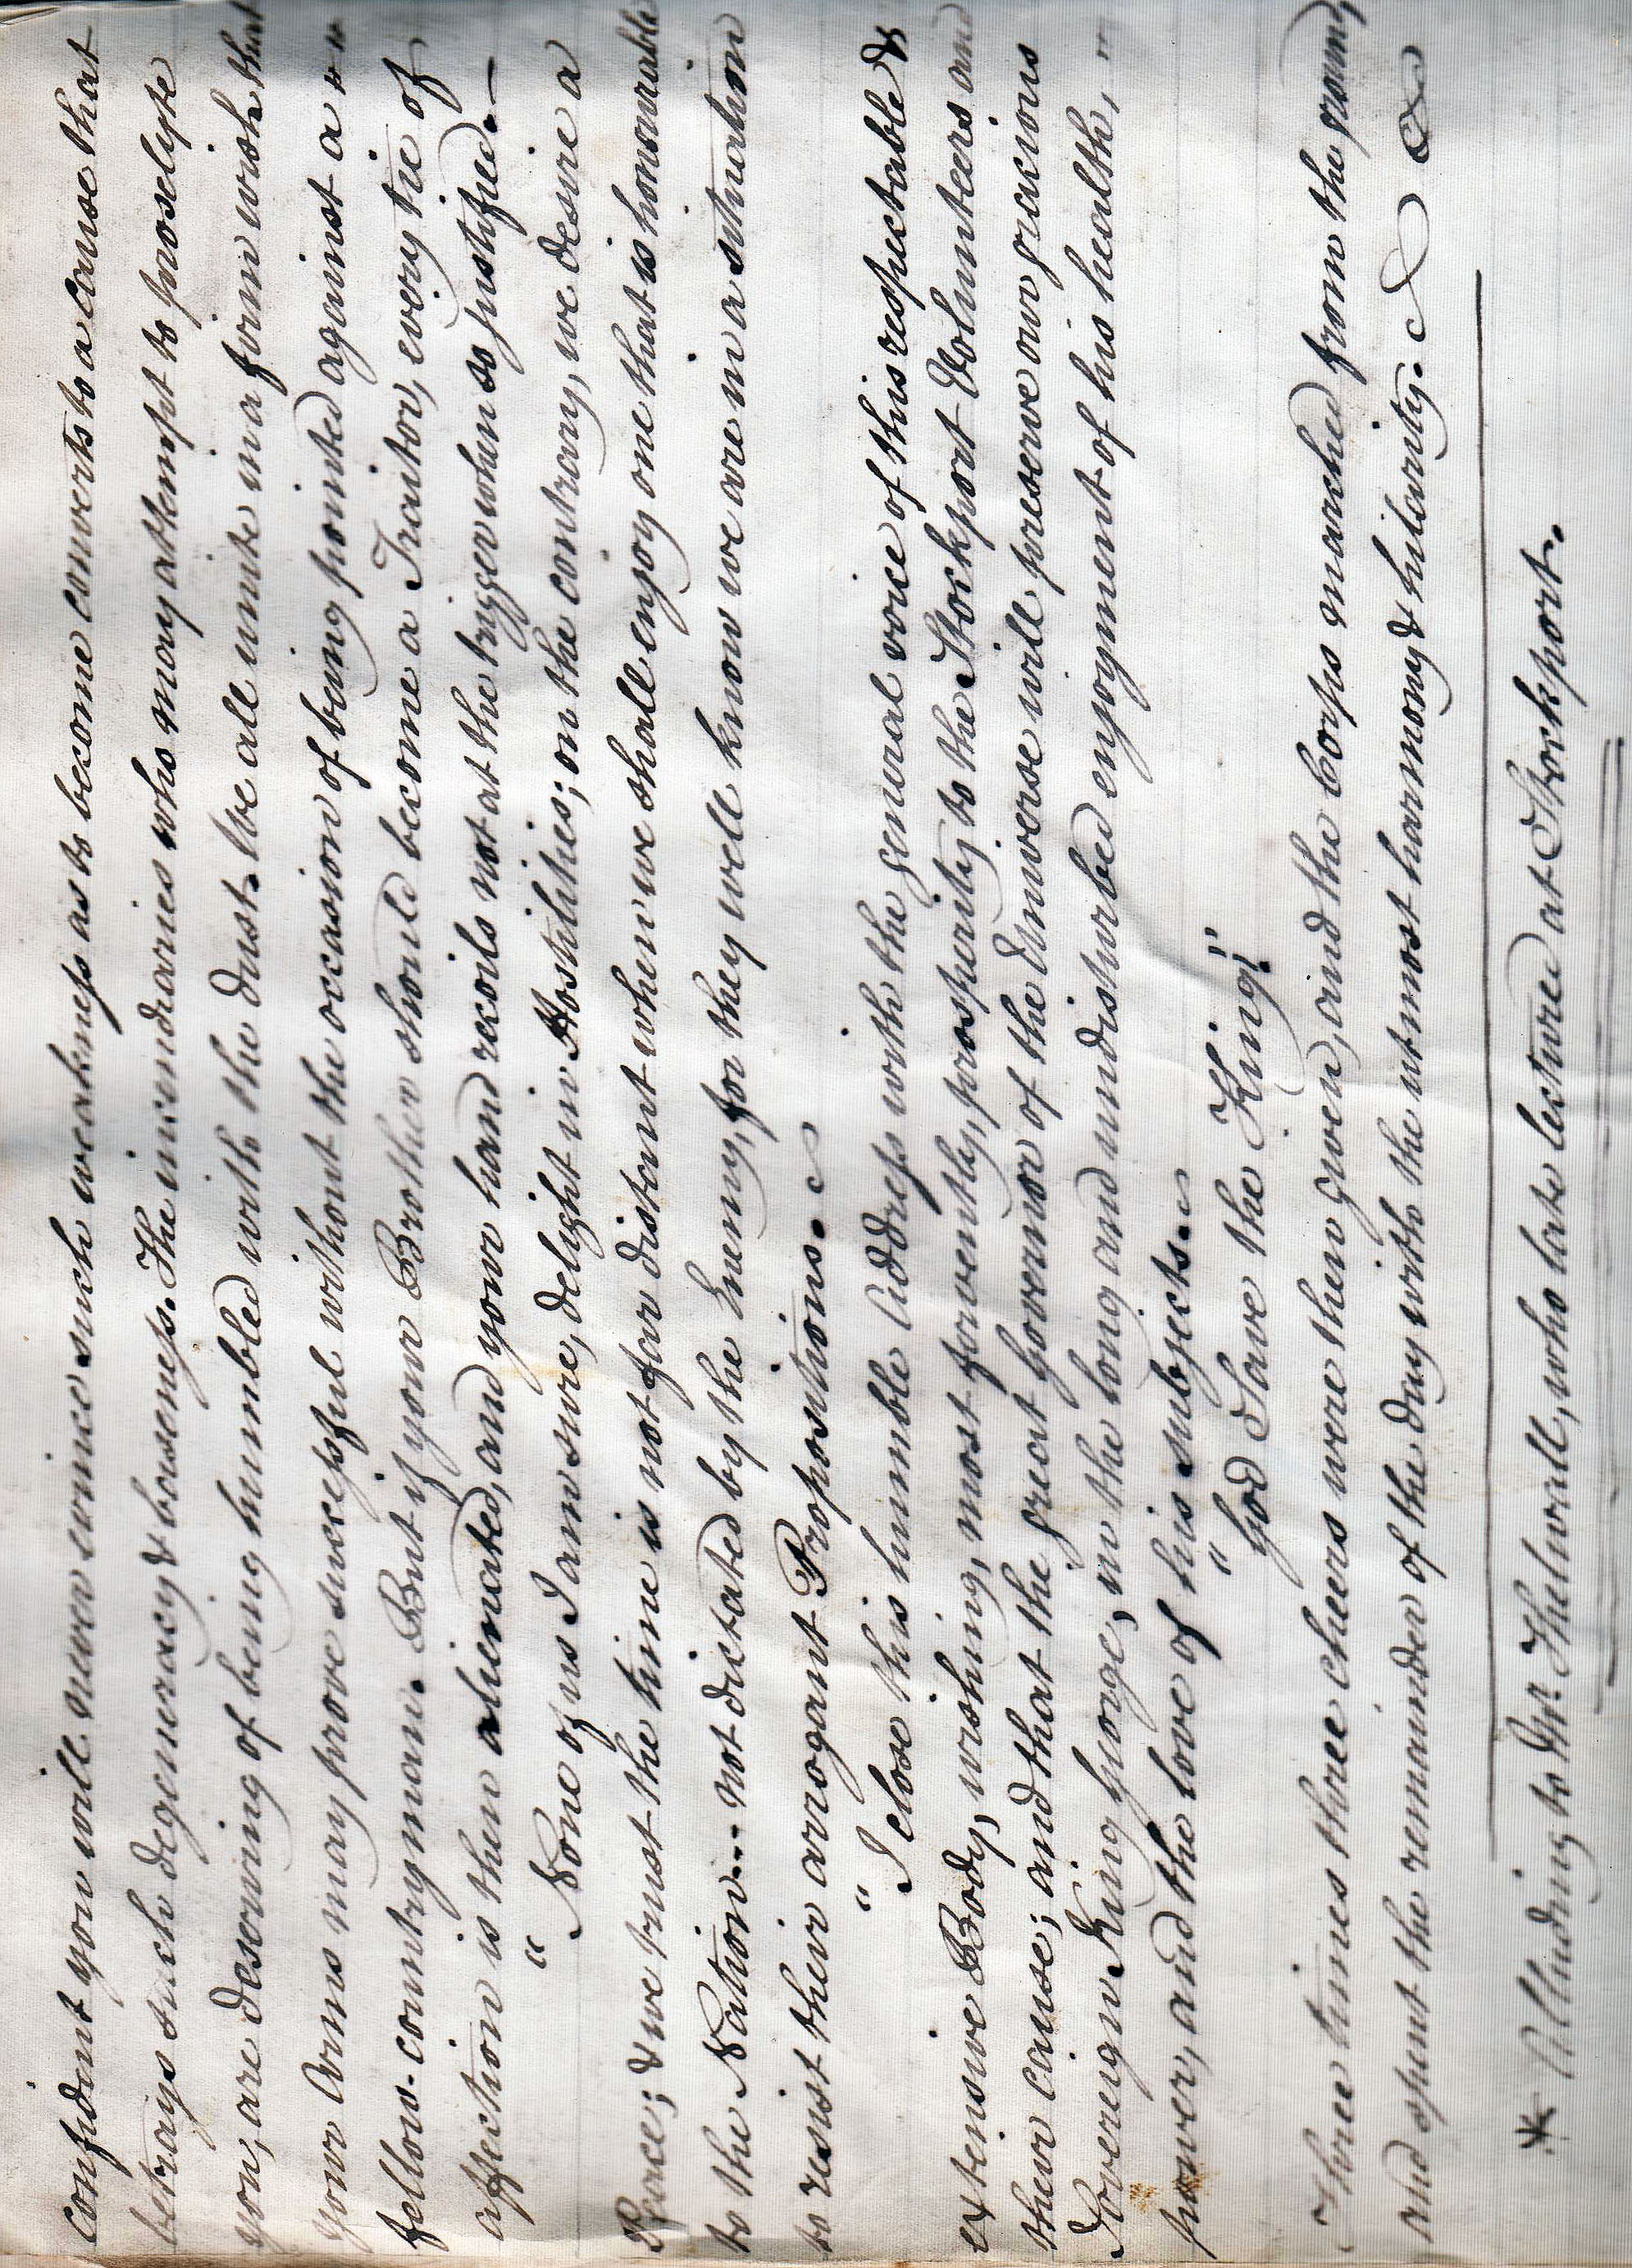 confident you will never evince such weakness as to become converts to a cause that
betrays such degeneracy & baseness. The incendiaries who may attempt to proselyte
you, are deserving of being humbled with the dust. We all unite in a firm wish that
your Arms may prove successful without the occasion of being pointed against a "
fellow-countryman. But if your Brother should become a Traitor, every tie of
affection is then alienated, and your hand recoils not at the trigger when so justified.—
" None of us I am sure, delight in Hostilities; on the contrary, we desire a
Peace; & we trust the time is not far distant when we shall enjoy one that is honourable
to the Nation... not dictated by the Enemy, for they well know we are in a situation
to resist their arrogant Propositions.
" I close this humble Address with the general voice of this respectable &
extensive Body, wishing, most fervently, prosperity to the Stockport Volunteers and
their cause; and that the great Governor of the Universe will preserve our gracious
Sovereign King George, in the long and undisturbed enjoyment of his health, "
power, and the love of his subjects.
" God Save the King!"
Three times three cheers were then given, and the Corps marched from the ground
and spent the remainder of the day with the utmost harmony & hilarity.
* Alluding to Mr. Thelwall, who late lectured at Stockport.